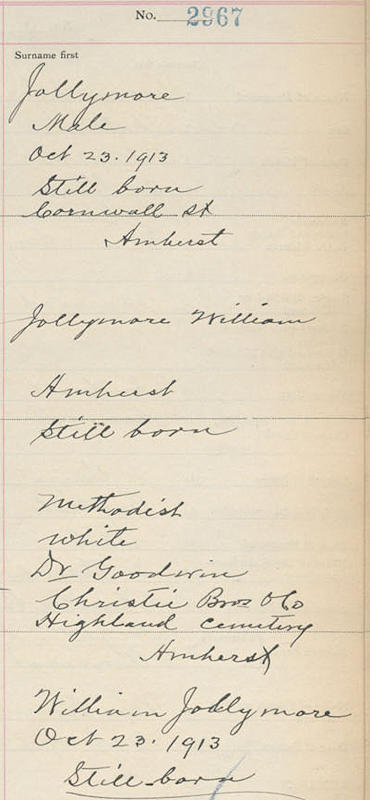 No. 2967
Surname first
Jollymore
Male
Oct 23. 1913
Still born
Cornwall St
Amherst
Jollymore William
Amherst
Still born
Methodist
White
Dr Goodwin
Christie Bros & Co
Highland Cemetery
Amherst
William Jollymore
Oct 23. 1913
Still-born